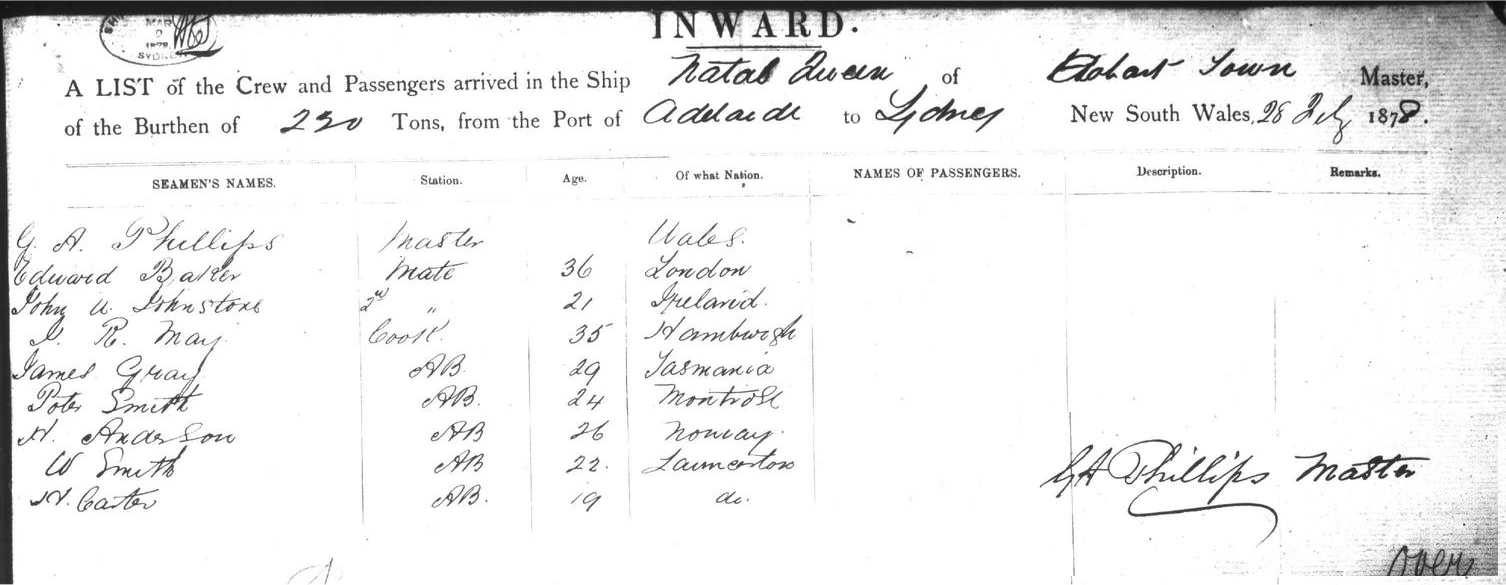 MAR
1878
SYDNEY
INWARD.
A LIST of the Crew and Passengers arrived in the Ship Natal Queen of Hobart Town Master,
of the Burthen of 220 Tons, from the Port of Adelaide to Sydney New South Wales, 28 Feby 1878.
SEAMEN'S NAMES. Station. Age. Of what Nation. NAMES OF PASSENGERS. Description. Remarks.
G. A. Phillips Master Wales.
Edward Baker Mate 36 London
John W Johnstone 2nd " 21 Ireland.
R. May Cook. 35 Hamburgh
James Gray AB. 29 Tasmania
Peter Smith AB. 24 Montrose
H. Anderson AB 26 Norway.
W Smith AB 22. Launceston
H. Carter AB. 19 do.
GA Phillips Master
over